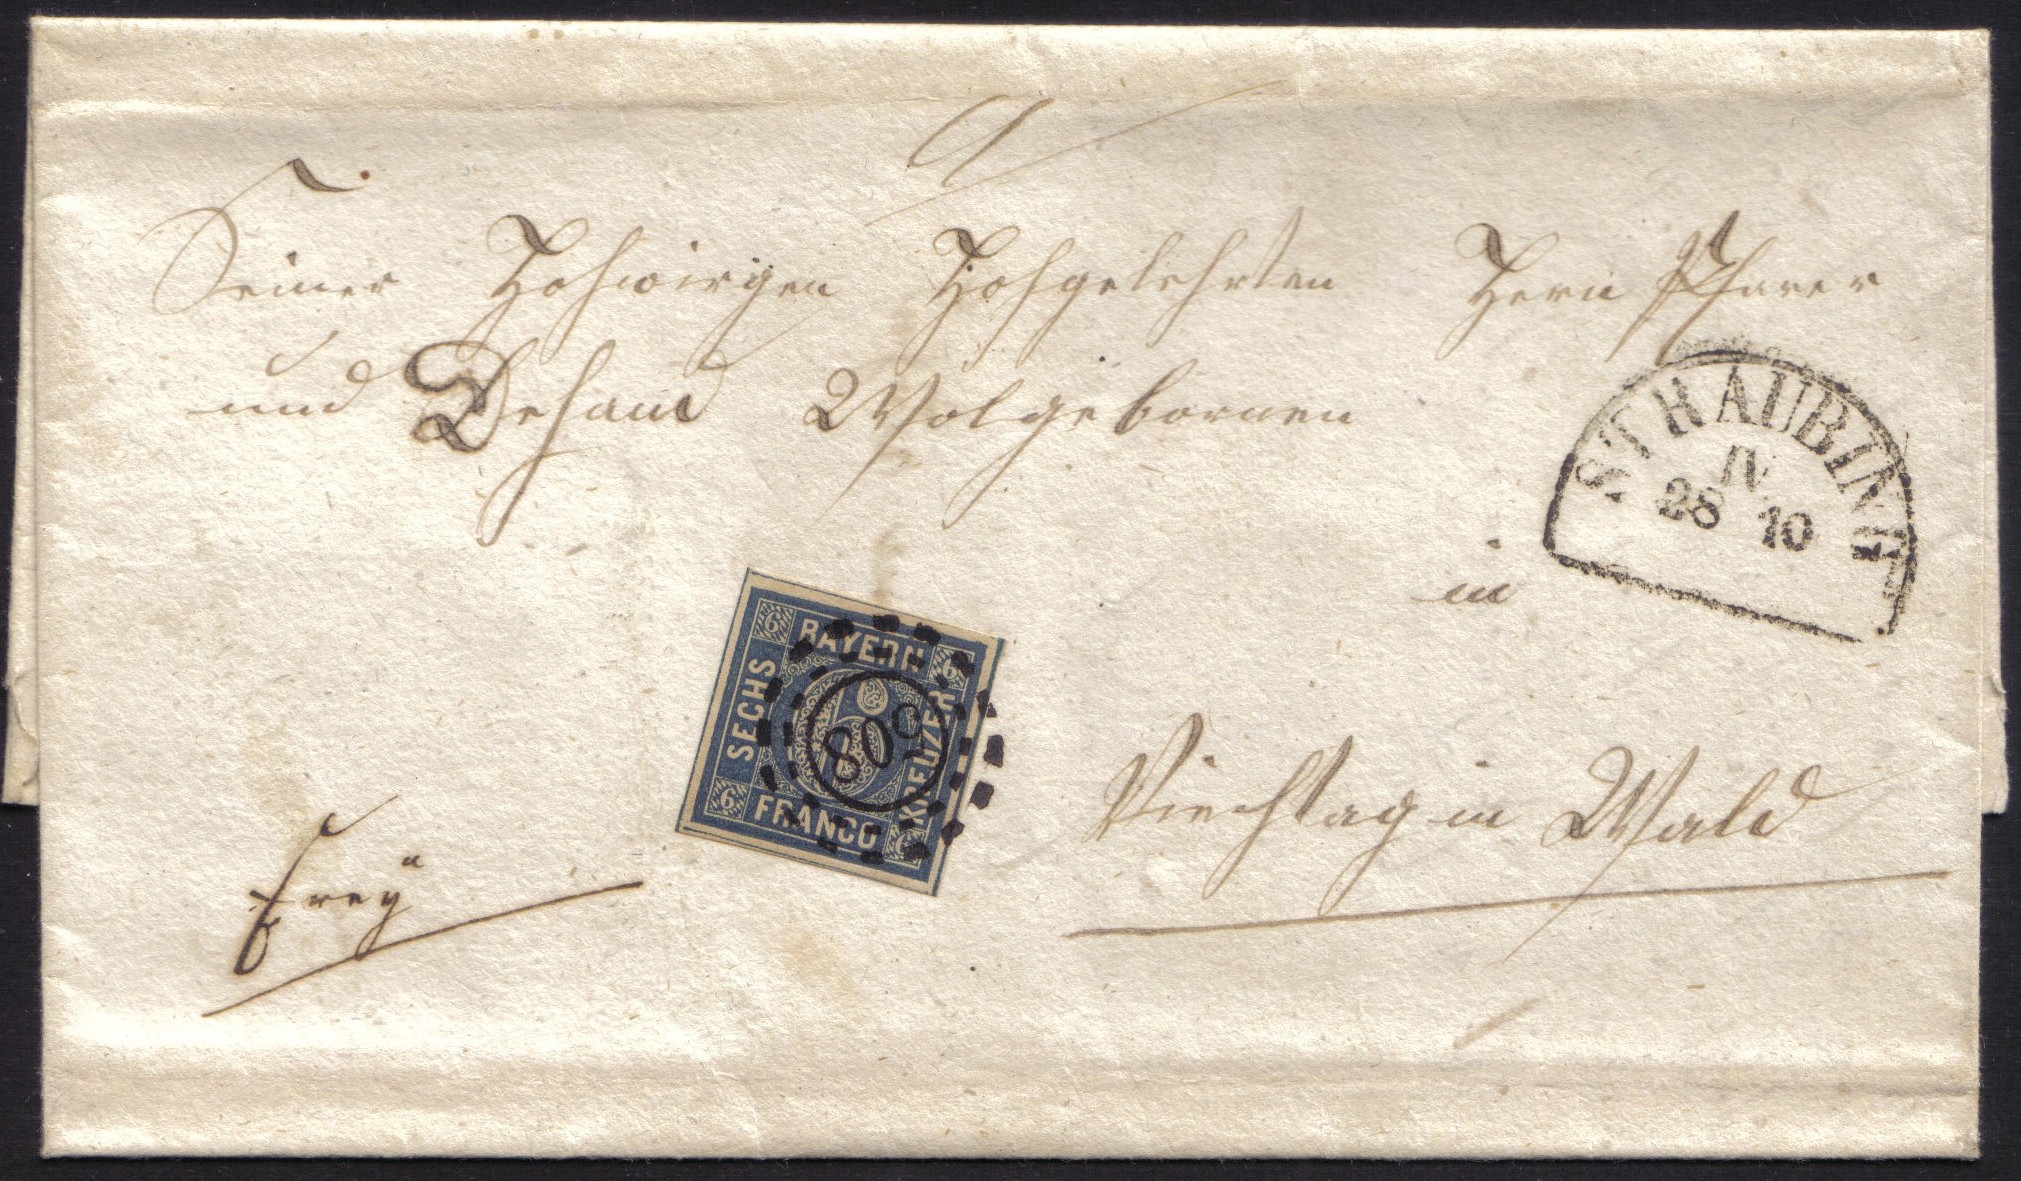 Seiner Hohwirgen Hohgelehrten Hern Pfarer
und Dehand Wolgebornen
in
Viechtag in Wald
frey
STRAUBING
IV
28 10
BAYERN
SECHS
KREUZER
FRANCO
6
6
6
6
6